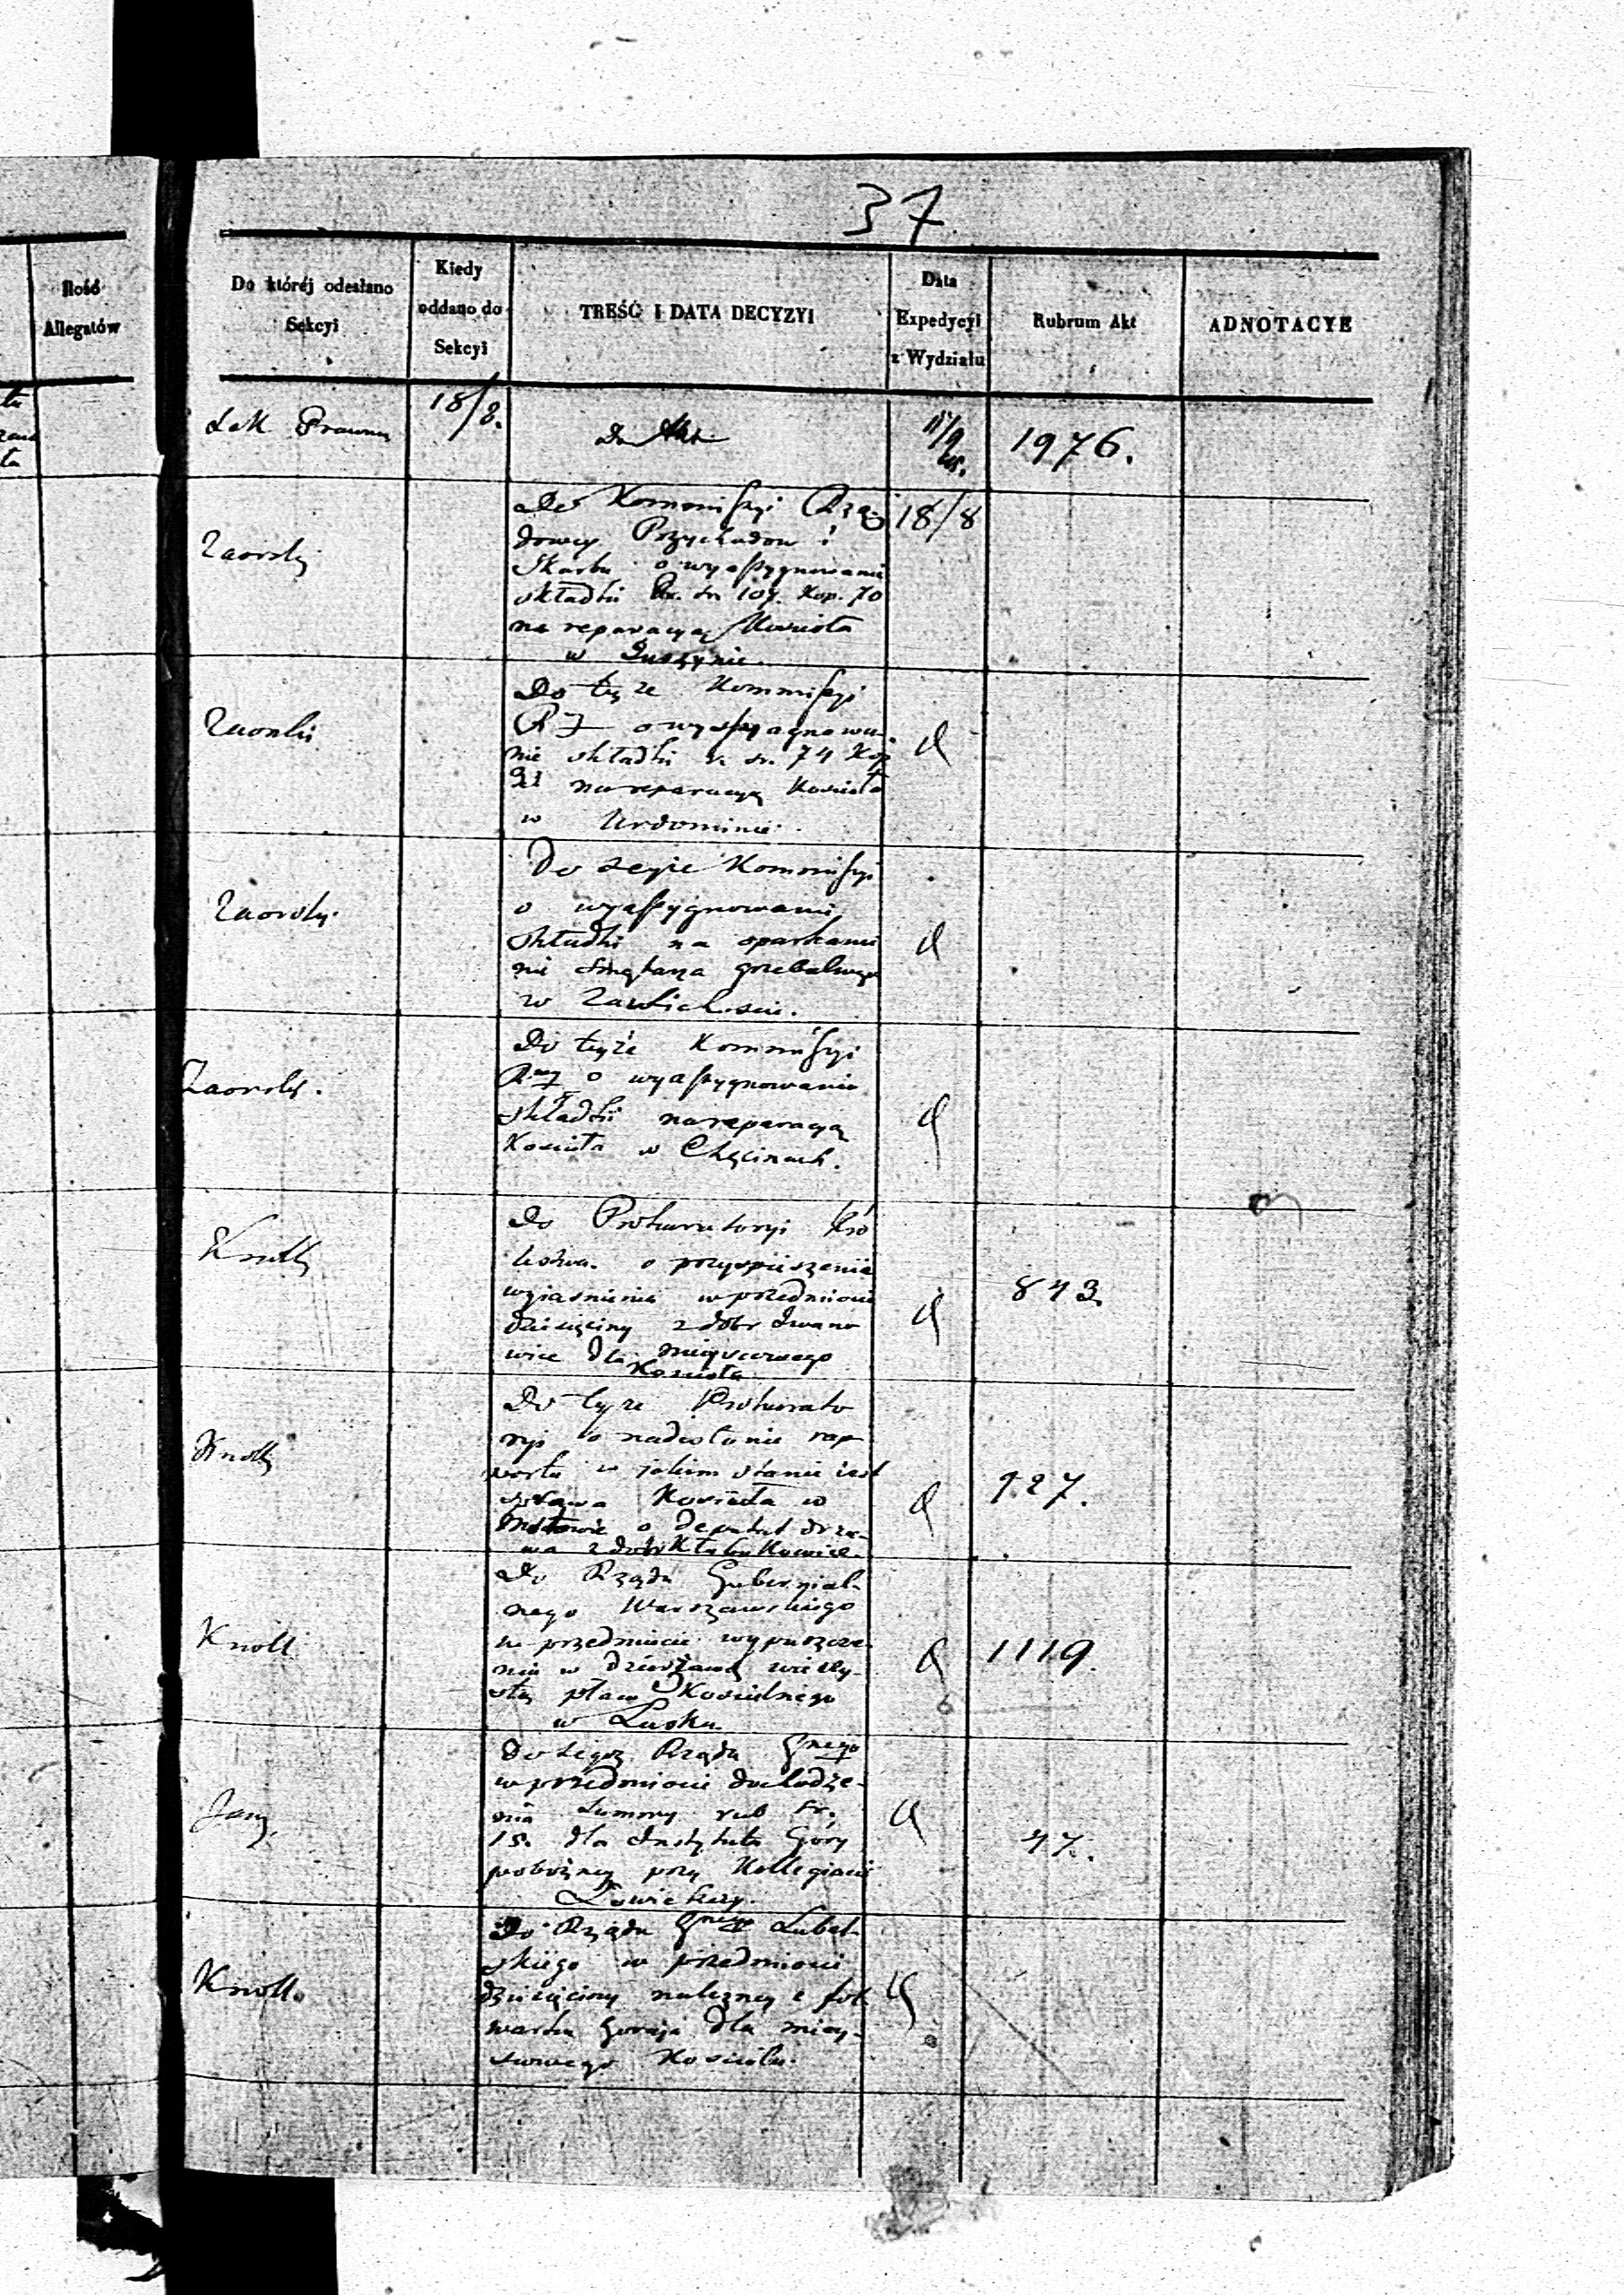 37
Ilość
Allegatów
Do któréj odesłano
Sekcyi
Kiedy
oddano do
Sekcyi
TREŚĆ I DATA DECYZYI
Data
Expedycyi
z Wydziału
Rubrum Akt
ADNOTACYE
Prawna
18/8.
Do Akt
11/9
1976.
Zaorski
Do Kommissyi Rzą-
dowey Przychodow i
Skarbu o wyassygnowanie
składki Rs. sr. 107. Kop. 70
na reparacyą Kościoła
w
18/8
Zaorski
Do teyże Kommissyi
o wyassygnowa-
nie składki r. sr. 74 Kop
na reparacyą Kościoła
w Urdominie.
Zaorski
Do tejże Kommissyi
o wyassygnowanie
składki na oparkanie
nie Cmętarza grzebalnego
w Zawichoście.
Zaorski.
Do teyże Kommissyi
o wyassygnowanie
składki na reparacyą
Kościoła w Chęcinach.
Knoll
Do Prokuratoryi Kró
lestwa. o przyspieszenie
wyjaśnienia w przedmiocie
dziesięciny z dobr Iwano
wice dla mieyscowego
Kościoła
843.
Knoll
Do teyże Prokurato
ryi o nadesłanie rap
portu w jakim stanie iest
sprawa Kościoła w
o deputat drze-
wa z dobr
927.
Knoll
Do Rządu Gubernial-
nego Warszawskiego
w przedmiocie wypuszcze-
nia w dzierżawę wieczy-
stą placu Kościelnego
w Łasku
1119.
Do tegoż Rządu Gnego
w przedmiocie dochodze-
nia summy rub sr.
15. dla Instytutu Góry
pobożney przy Kollegiacie
Łowickiey.
47.
Knoll.
Do Rządu Gnego Lubel-
skiego w przedmiocie
dziesięciny należney z fol
warku Goraja dla miey-
scowego Kościoła.